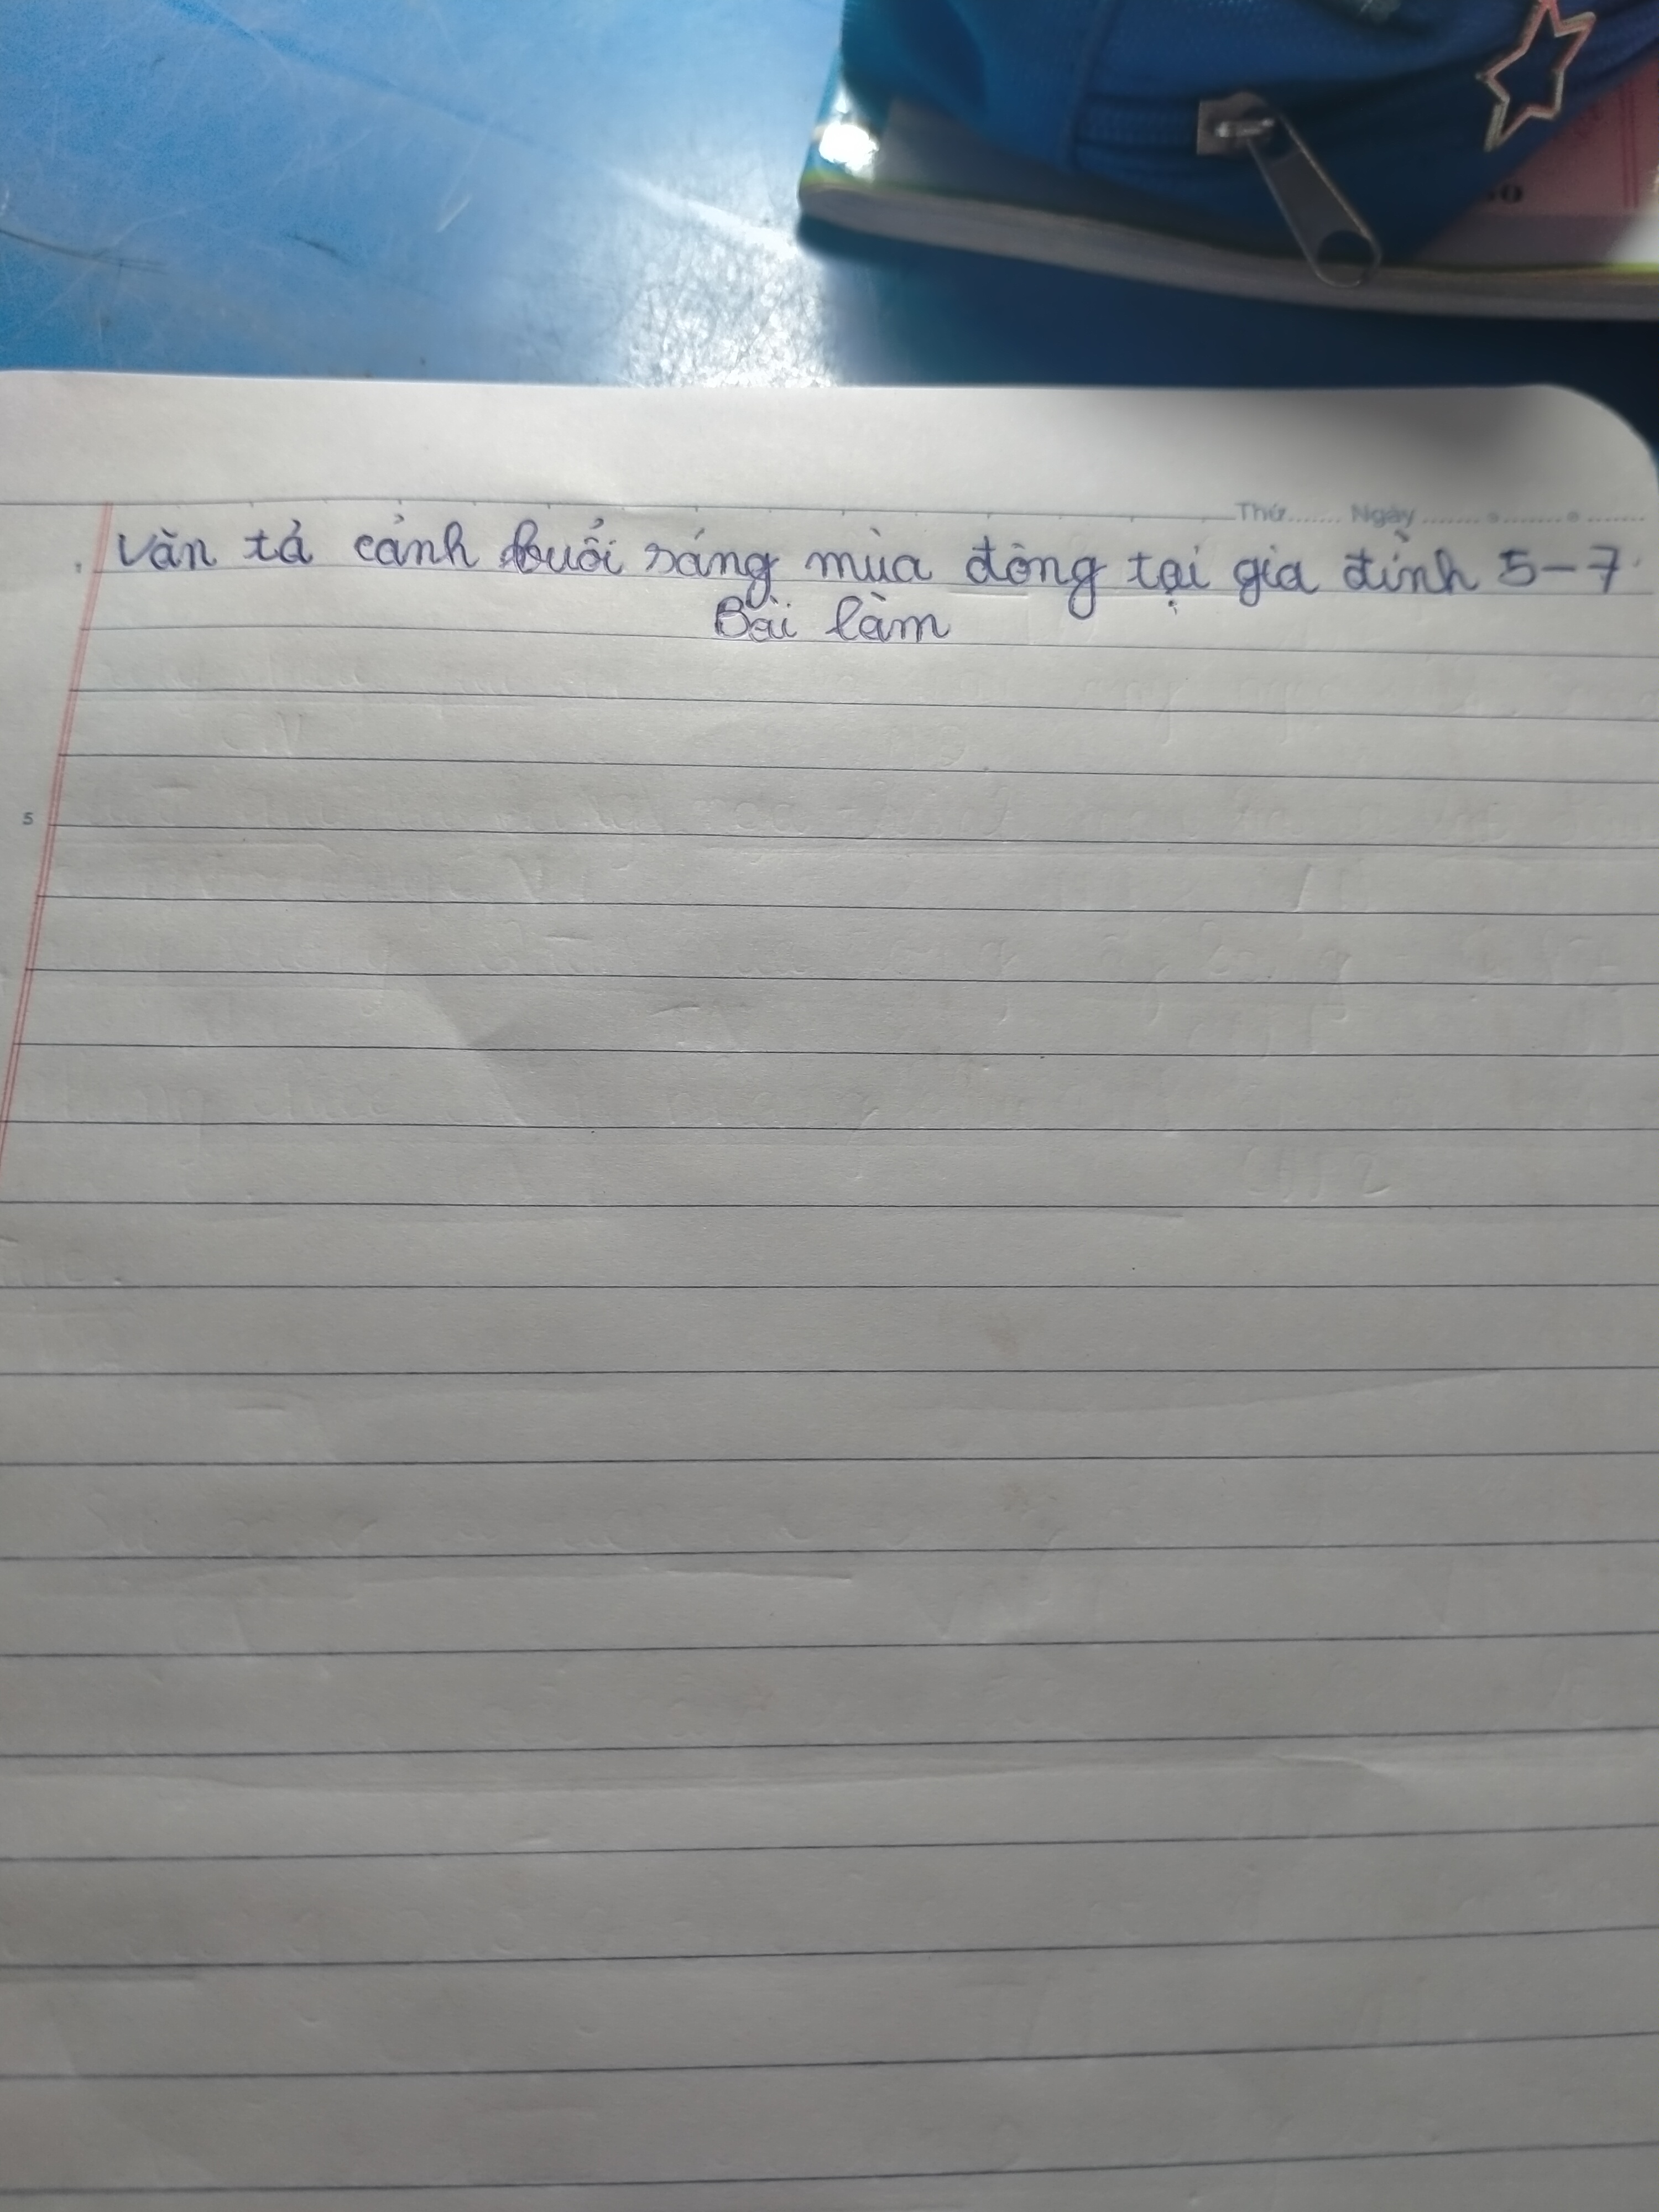 Thứ....... Ngày ....................
Văn tả cảnh buổi sáng mùa đông tại gia đình 5-7
Bài làm
5